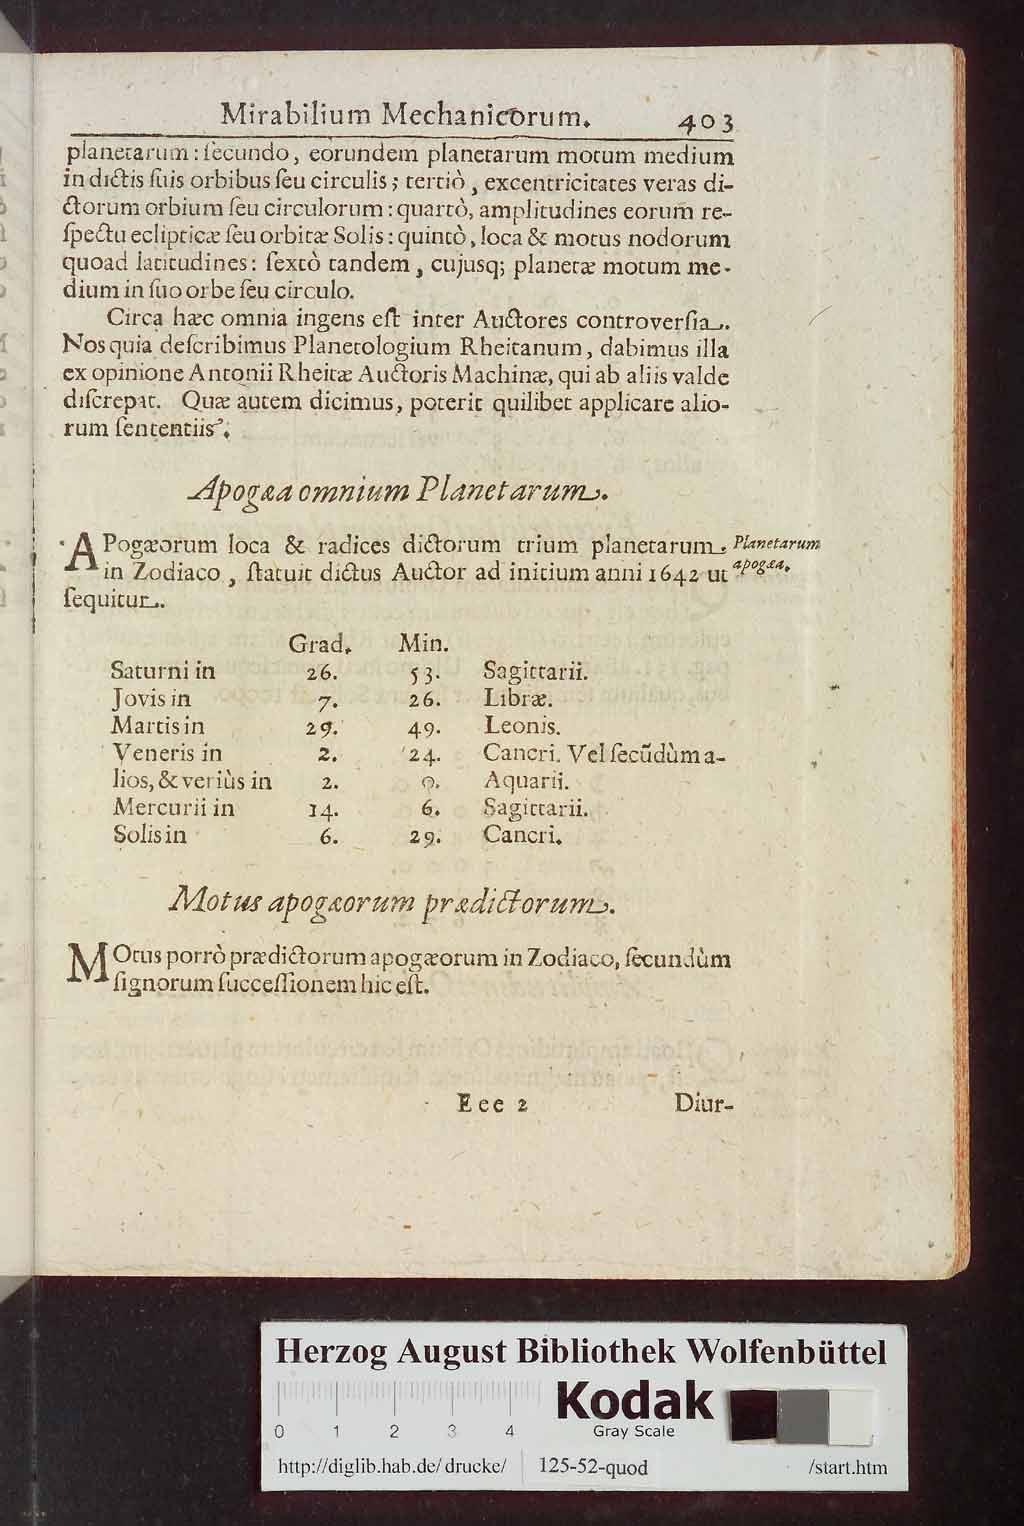 Mirabilium Mechanicorum. 403
planetarum: ſecundo, eorundem planetarum motum medium
in dictis ſuis orbibus ſeu circulis; tertiò, excentricitates veras di-
ctorum orbium ſeu circulorum: quartò, amplitudines eorum re-
ſpectu eclipticæ ſeu orbitæ Solis: quintò, loca & motus nodorum
quoad latitudines: ſextò tandem, cujusq; planetæ motum me-
dium in ſuo orbe ſeu circulo.
Circa hæc omnia ingens eſt inter Auctores controverſia.
Nos quia deſcribimus Planetologium Rheitanum, dabimus illa
ex opinione Antonii Rheitæ Auctoris Machinæ, qui ab aliis valde
diſcrepat. Quæ autem dicimus, poterit quilibet applicare alio-
rum ſententiis.
Apogæa omnium Planetarum.
APogæorum loca & radices dictorum trium planetarum. Planetarum
in Zodiaco, ſtatuit dictus Auctor ad initium anni 1642 ut apogæa.
ſequitur.
Grad. Min.
Saturni in 26. 53. Sagittarii.
Jovis in 7. 26. Libræ.
Martis in 29. 49. Leonis.
Veneris in 2. 24. Cancri. Vel ſecũdùm a-
lios, & veriùs in 2. 0. Aquarii.
Mercurii in 14. 6. Sagittarii.
Solis in 6. 29. Cancri.
Motus apogæorum prædictorum.
MOtus porrò prædictorum apogæorum in Zodiaco, ſecundùm
ſignorum ſucceſſionem hic eſt.
Eee 2 Diur-
Herzog August Bibliothek Wolfenbüttel
Kodak
0 1 2 3 4 Gray Scale
http://diglib.hab.de/drucke/ 125-52-quod /start.htm